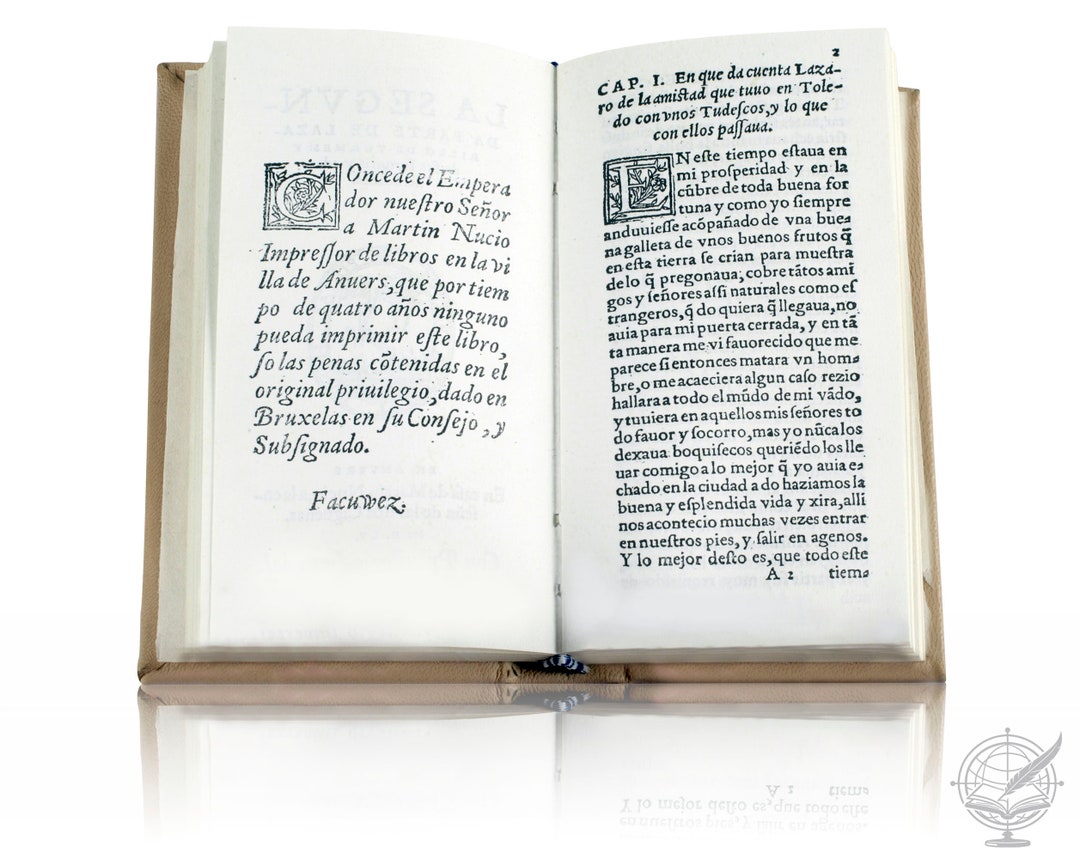 COncede el Empera
dor nueſtro Señor
a Martin Nucio
Impreſſor de libros en la vi
lla de Anuers, que por tiem
po de quatro años ninguno
pueda imprimir eſte libro,
ſo las penas cõtenidas en el
original priuilegio, dado en
Bruxelas en ſu Conſejo, y
Subſignado.
Facuwez.
2
CAP. I. En que da cuenta Laza-
ro de la amiſtad que tuuo en Tole-
do con vnos Tudeſcos, y lo que
con ellos paſſaua.
EN eſte tiempo eſtaua en
mi proſperidad y en la
cũbre de toda buena for
tuna y como yo ſiempre
anduuieſſe acõpañado de vna bue-
na galleta de vnos buenos frutos q̃
en eſta tierra ſe crian para mueſtra
de lo q̃ pregonaua; cobre tãtos ami
gos y ſeñores aſſi naturales como eſ
trangeros, q̃ do quiera q̃ llegaua, no
auia para mi puerta cerrada, y en tã
ta manera me vi fauorecido que me
parece ſi entonces matara vn hom-
bre, o me acaeciera algun caſo rezio
hallara a todo el mũdo de mi vãdo,
y tuuiera en aquellos mis ſeñores to
do fauor y ſocorro, mas yo nũca los
dexaua boquiſecos queriẽdo los lle
uar comigo a lo mejor q̃ yo auia e-
chado en la ciudad a do haziamos la
buena y eſplendida vida y xira, alli
nos acontecio muchas vezes entrar
en nueſtros pies, y ſalir en agenos.
Y lo mejor deſto es, que todo eſte
A 2 tiem-